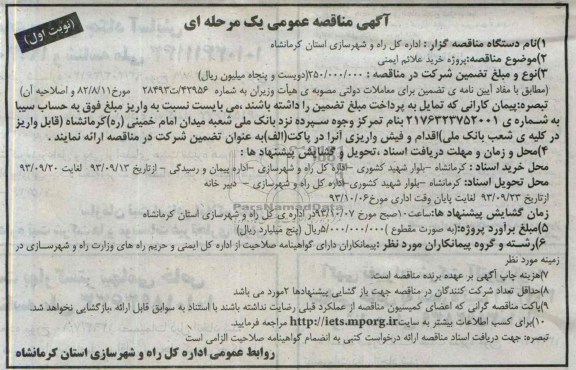 آگهی مناقصه عمومی یک مرحله ای
(نوبت اول)
۱)نام دستگاه مناقصه گزار : اداره کل راه و شهرسازی استان کرمانشاه
۲)موضوع مناقصه:پروژه خرید علائم ایمنی
۳)نوع و مبلغ تضمین شرکت در مناقصه : ۲۵۰/۰۰۰/۰۰۰(دویست و پنجاه میلیون ریال)
(مطابق با مفاد آیین نامه ی تضمین برای معاملات دولتی مصوبه ی هیأت وزیران به شماره ۴۲۹۵۶/ت۲۸۴۹۳ مورخ۸۲/۸/۱۱ و اصلاحیه آن)
تبصره:پیمان کارانی که تمایل به پرداخت مبلغ تضمین را داشته باشند ،می بایست نسبت به واریز مبلغ فوق به حساب سیبا
به شماره ی ۲۱۷۶۲۲۳۷۵۲۰۰۱ بنام تمرکز وجوه سپرده نزد بانک ملی شعبه میدان امام خمینی (ره)کرمانشاه (قابل واریز
در کلیه ی شعب بانک ملی)اقدام و فیش واریزی آنرا در پاکت(الف)به عنوان تضمین شرکت در مناقصه ارائه نمایند .
۴)محل و زمان و مهلت دریافت اسناد ،تحویل و گشایش پیشنهاد ها :
محل خرید اسناد : کرمانشاه –بلوار شهید کشوری –اداره کل راه و شهرسازی –اداره پیمان و رسیدگی – ازتاریخ ۹۳/۰۹/۱۳ لغایت ۹۳/۰۹/۲۰
محل تحویل اسناد: کرمانشاه –بلوار شهید کشوری–اداره کل راه و شهرسازی – دبیر خانه
ازتاریخ ۹۳/۰۹/۲۳ لغایت پایان وقت اداری مورخ۹۳/۱۰/۰۶
زمان گشایش پیشنهاد ها:ساعت۱۰صبح مورخ ۹۳/۱۰/۰۷در اداره ی کل راه و شهرسازی استان کرمانشاه
۵)مبلغ برآورد پروژه:(به صورت مقطوع )۵/۰۰۰/۰۰۰/۰۰۰ریال (پنج میلیارد ریال)
۶)رشته و گروه پیمانکاران مورد نظر :پیمانکاران دارای گواهینامه صلاحیت از اداره کل ایمنی و حریم راه های وزارت راه و شهرسازی در
زمینه مورد نظر
۷)هزینه چاپ آگهی بر عهده برنده مناقصه است.
۸)حداقل تعداد شرکت کنندگان در مناقصه جهت باز گشایی پیشنهادها ۲مورد می باشد
۹)پاکت مناقصه گرانی که اعضای کمیسیون مناقصه از عملکرد قبلی رضایت نداشته باشند با استناد به سوابق قابل ارائه ،بازگشایی نخواهد شد.
۱۰)برای کسب اطلاعات بیشتر به سایت http://iets.mporg.ir مراجعه فرمایید.
تبصره: جهت دریافت اسناد مناقصه ارائه درخواست کتبی به انضمام گواهینامه صلاحیت الزامی است
روابط عمومی اداره کل راه و شهرسازی استان کرمانشاه